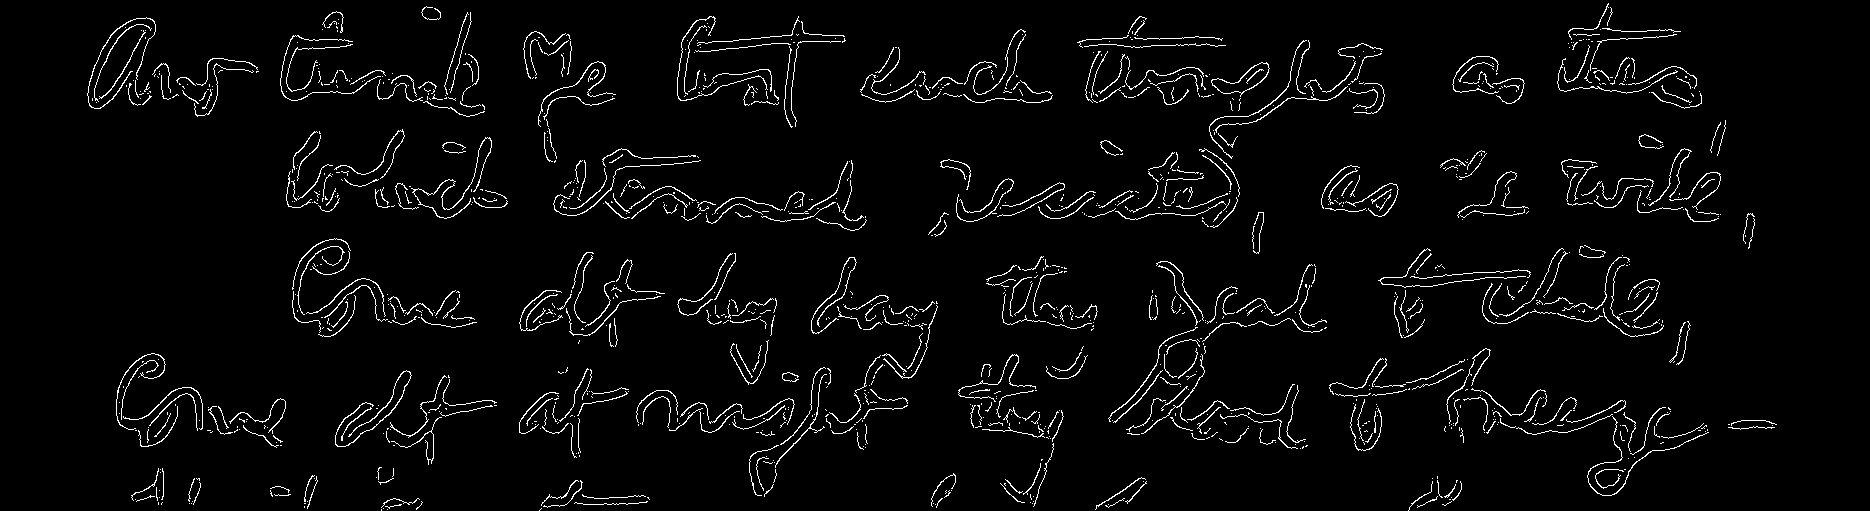 And think ye that such thoughts as these
Which damned, recited, as I write,
Come oft by day thy zeal to chide,
Come oft at night thy blood to freeze —